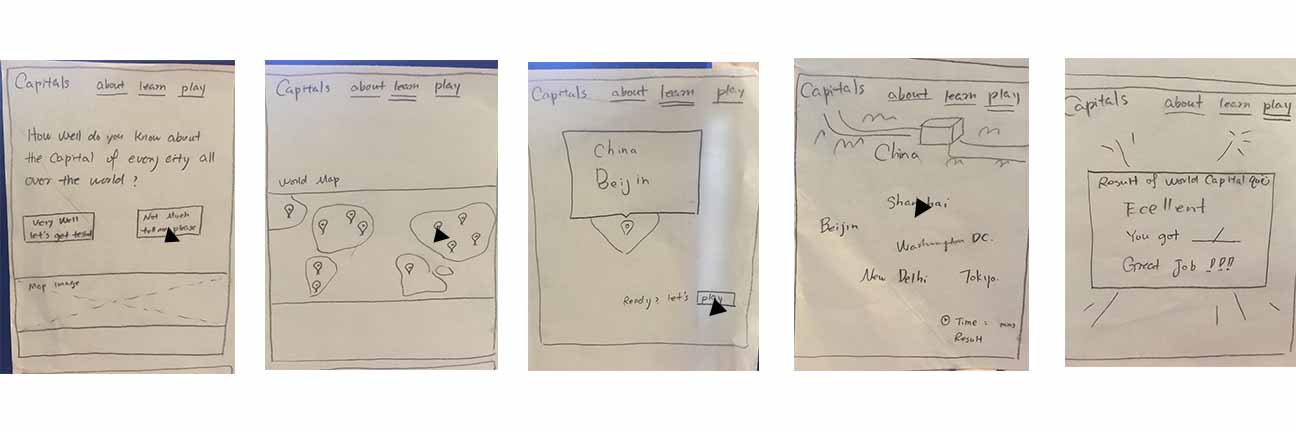 Capitals about learn play
How Well do you know about
the Capital of every city all
over the world?
Very Well
let's get test
Not Much
tell me please
Map image
Capitals about learn play
World Map
Capitals about learn play
China
Beijin
Ready? let's play
Capitals about learn play
China
Shanghai
Beijin
Washington DC.
New Delhi Tokyo
Time : mins
Result
Capitals about learn play
Result of World Capital quiz
Ecellent
You got __/__
Great Job !!!